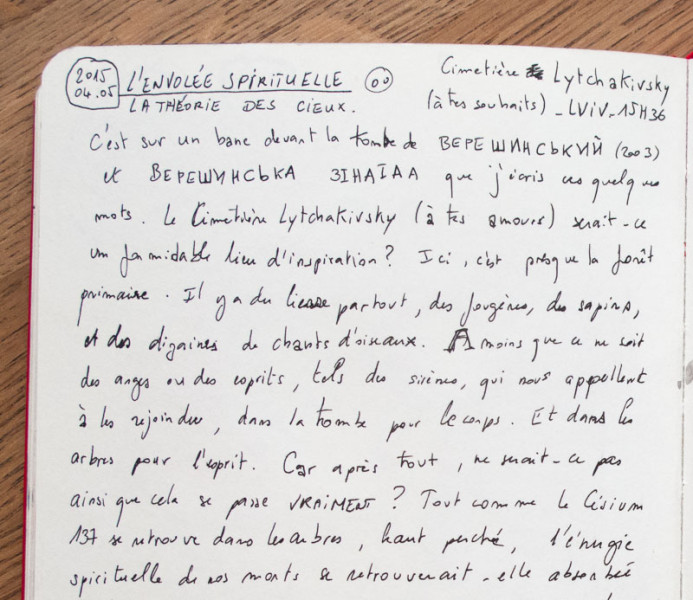 2015
04.05
L'ENVOLÉE SPIRITUELLE 00
LA THÉORIE DES CIEUX.
Cimetière Lytchakivsky
(à tes souhaits) - LVIV - 15H36
C'est sur un banc devant la tombe de ВЕРЕШИНСЬКИЙ (2003)
et ВЕРЕШИНСЬКА ЗІНАЇДА que j'écris ces quelques
mots. Le Cimetière Lytchakivsky (à tes amours) serait-ce
un formidable lieu d'inspiration? Ici, c'est presque la forêt
primaire. Il y a du lierre partout, des fougères, des sapins,
et des dizaines de chants d'oiseaux. A moins que ce ne soit
des anges ou des esprits, tels des sirènes, qui nous appellent
à les rejoindre, dans la tombe pour le corps. Et dans les
arbres pour l'esprit. Car après tout, ne serait-ce pas
ainsi que cela se passe VRAIMENT? Tout comme le Césium
137 se retrouve dans les arbres, haut perché, l'énergie
spirituelle de nos morts se retrouverait-elle absorbée